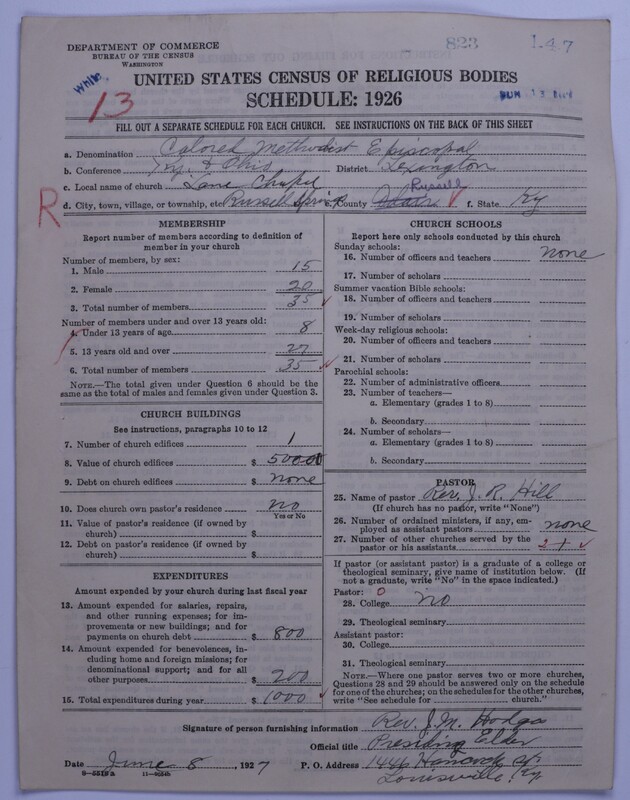 823
1-4-7
DEPARTMENT OF COMMERCE
BUREAU OF THE CENSUS
WASHINGTON
White
13
UNITED STATES CENSUS OF RELIGIOUS BODIES
SCHEDULE: 1926
FILL OUT A SEPARATE SCHEDULE FOR EACH CHURCH. SEE INSTRUCTIONS ON THE BACK OF THIS SHEET
a. Denomination Colored Methodist Episcopal
b. Conference Ky. & Ohio District Lexington
c. Local name of church Lane Chapel
Russell
R
d. City, town, village, or township, etc. Russell Springs e. County Adair f. State Ky
MEMBERSHIP
Report number of members according to definition of
member in your church
Number of members, by sex:
1. Male 15
2. Female 20
3. Total number of members 35
Number of members under and over 13 years old:
4. Under 13 years of age 8
5. 13 years old and over 27
6. Total number of members 35
NOTE.—The total given under Question 6 should be
the same as the total of males and females given under Question 3.
CHURCH BUILDINGS
See instructions, paragraphs 10 to 12
7. Number of church edifices 1
8. Value of church edifices $
9. Debt on church edifices $ none
10. Does church own pastor's residence? no
Yes or No
11. Value of pastor's residence (if owned by
church) $
12. Debt on pastor's residence (if owned by
church) $
EXPENDITURES
Amount expended by your church during last fiscal year
13. Amount expended for salaries, repairs,
and other running expenses; for im-
provements or new buildings; and for
payments on church debt $ 800
14. Amount expended for benevolences, in-
cluding home and foreign missions; for
denominational support; and for all
other purposes $ 200
15. Total expenditures during year $ 1000
CHURCH SCHOOLS
Report here only schools conducted by this church
Sunday schools:
16. Number of officers and teachers none
17. Number of scholars
Summer vacation Bible schools:
18. Number of officers and teachers
19. Number of scholars
Week-day religious schools:
20. Number of officers and teachers
21. Number of scholars
Parochial schools:
22. Number of administrative officers
23. Number of teachers—
a. Elementary (grades 1 to 8)
b. Secondary
24. Number of scholars—
a. Elementary (grades 1 to 8)
b. Secondary
PASTOR
25. Name of pastor Rev. J. R. Hill
(If church has no pastor, write "None")
26. Number of ordained ministers, if any, em-
ployed as assistant pastors none
27. Number of other churches served by the
pastor or his assistants
If pastor (or assistant pastor) is a graduate of a college or
theological seminary, give name of institution below. (If
not a graduate, write "No" in the space indicated.)
Pastor: 0
28. College no
29. Theological seminary
Assistant pastor:
30. College
31. Theological seminary
NOTE.—Where one pastor serves two or more churches,
Questions 28 and 29 should be answered only on the schedule
for one of the churches; on the schedules for the other churches,
write "See schedule for church."
Signature of person furnishing information Rev. J. M. Hodge
Official title Presiding Elder
Date June 8, 1927 P. O. Address 1446 Hancock st
Louisville, Ky